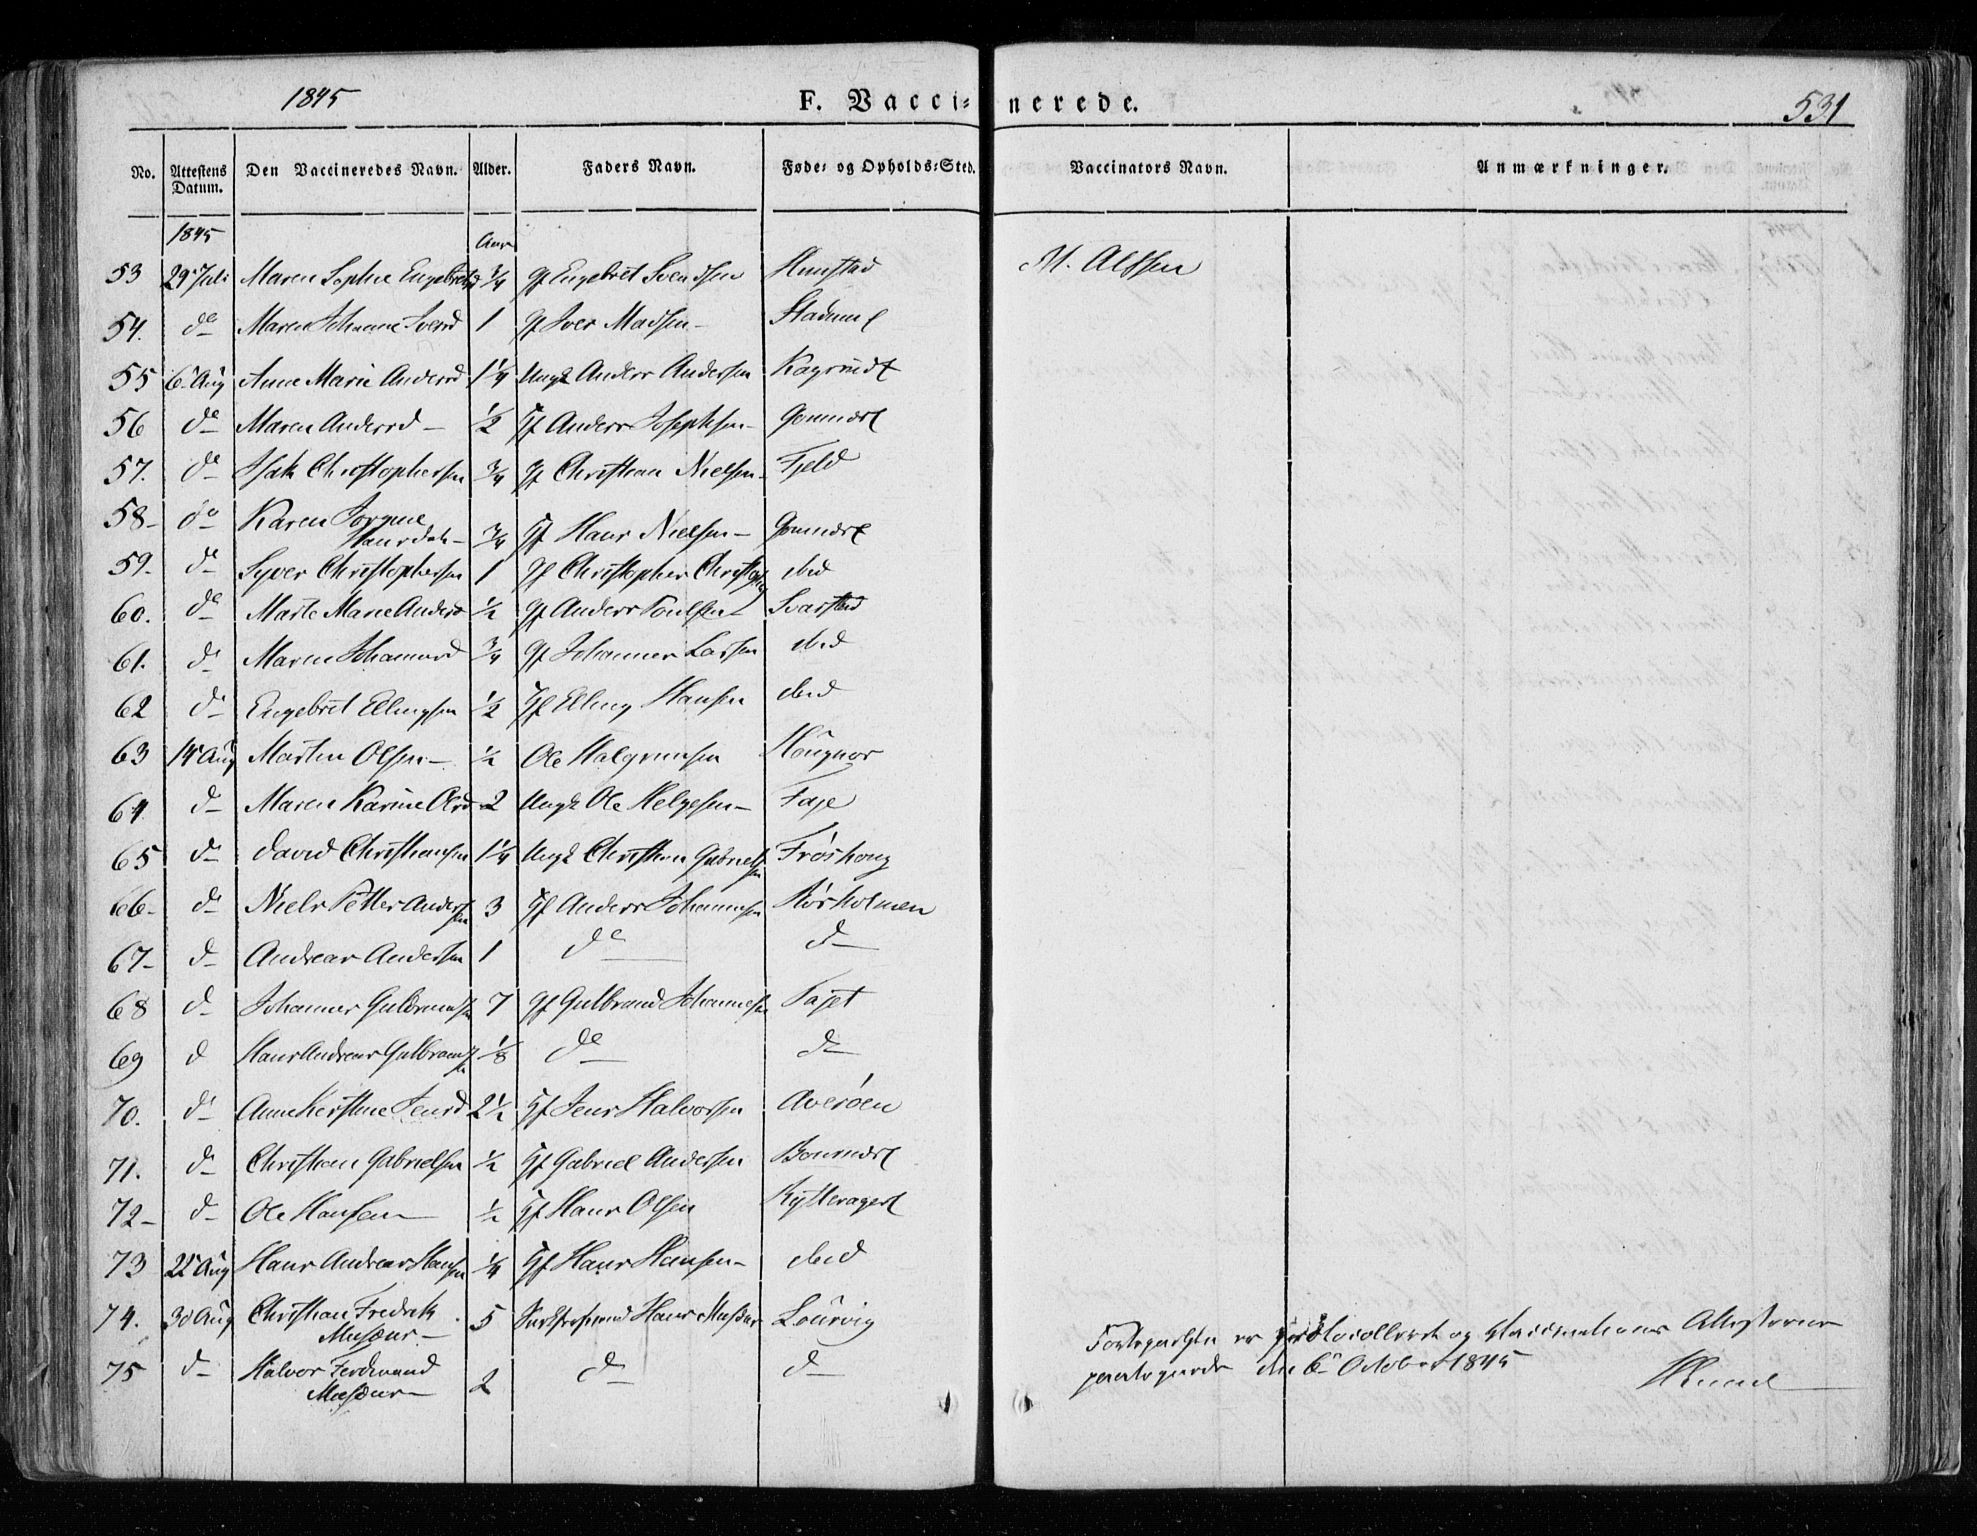 1845 F. Vaccinerede. 531
No. Attestens Datum. Den Vaccineredes Navn. Alder. Faders Navn. Føde- og Opholds-Sted. Vaccinators Navn. Anmærkninger.
1845 Aar
53 29 Juli Maren Sophie Engebretsd 3/4 Gf Engebret Svendsen M. Alfsen
54. do Maren Johanne Iversd 1 Gf Iver Madsen
55 6 Aug Anne Marie Andersd 1 1/4 Ungk Anders Andersen
56 do Maren Andersd 1/2 Gf Anders Josephsen
57. do Isak Christophersen 3/4 Gf Christian Nielsen Fjeld
58 do Karen
Hansdat 3/4 Gf Hans Nielsen
59. do Syver Christophersen 1 Gf Christopher Christophersen ibid
60. do Marte Marie Andersd 1/2 Gf Anders Poulsen Svarstad
61. do Maren Johannesd 3/4 Gf Johannes Larsen ibid
62 do Engebret Ellingsen 1/2 Gf Elling Hansen ibid
63 14 Aug Martin Olsen 1/2 Ole Halgrimsen
64 do Maren Karine Olsd 2 Ungk Ole Helgesen
65 do David Christiansen 1 1/4 Ungk Christian Gabrielsen Frøshoug
66 do Niels Petter Andersen 3 Gf Anders Johannesen Rørholmen
67 do Andreas Andersen 1 do do
68 d Johannes Gulbransen 7 Gf Gulbrand Johannesen
69 d Hans Andreas Gulbransen 1/8 do do
70. do Anne Kirstine Jensd 2 1/2 Gf Jens Halvorsen Averøen
71. do Christian Gabrielsen 1/2 Gf Gabriel Andersen
72 do Ole Hansen 1/2 Gf Hans Olsen Rytteraget
73 22 Aug Hans Andreas Hansen 1/4 Gf Hans Hansen ibid
74. 30 Aug Christian Fredrik
5 Hans Lourvig
75 do Halvor Ferdinand
2 do do
er og Attesterne
den 6 October 1845